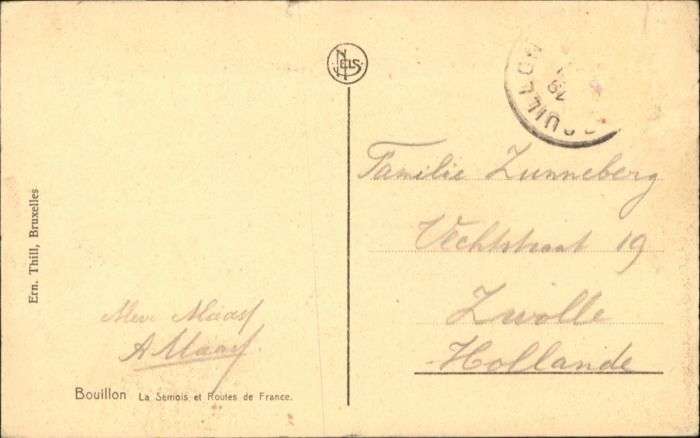 NELS
BOUILLON
Ern. Thill, Bruxelles
Familie Zunneberg
Vechtstraat 19
Zwolle
Hollande
Mevr Maas
A Maas
Bouillon La Semois et Routes de France.